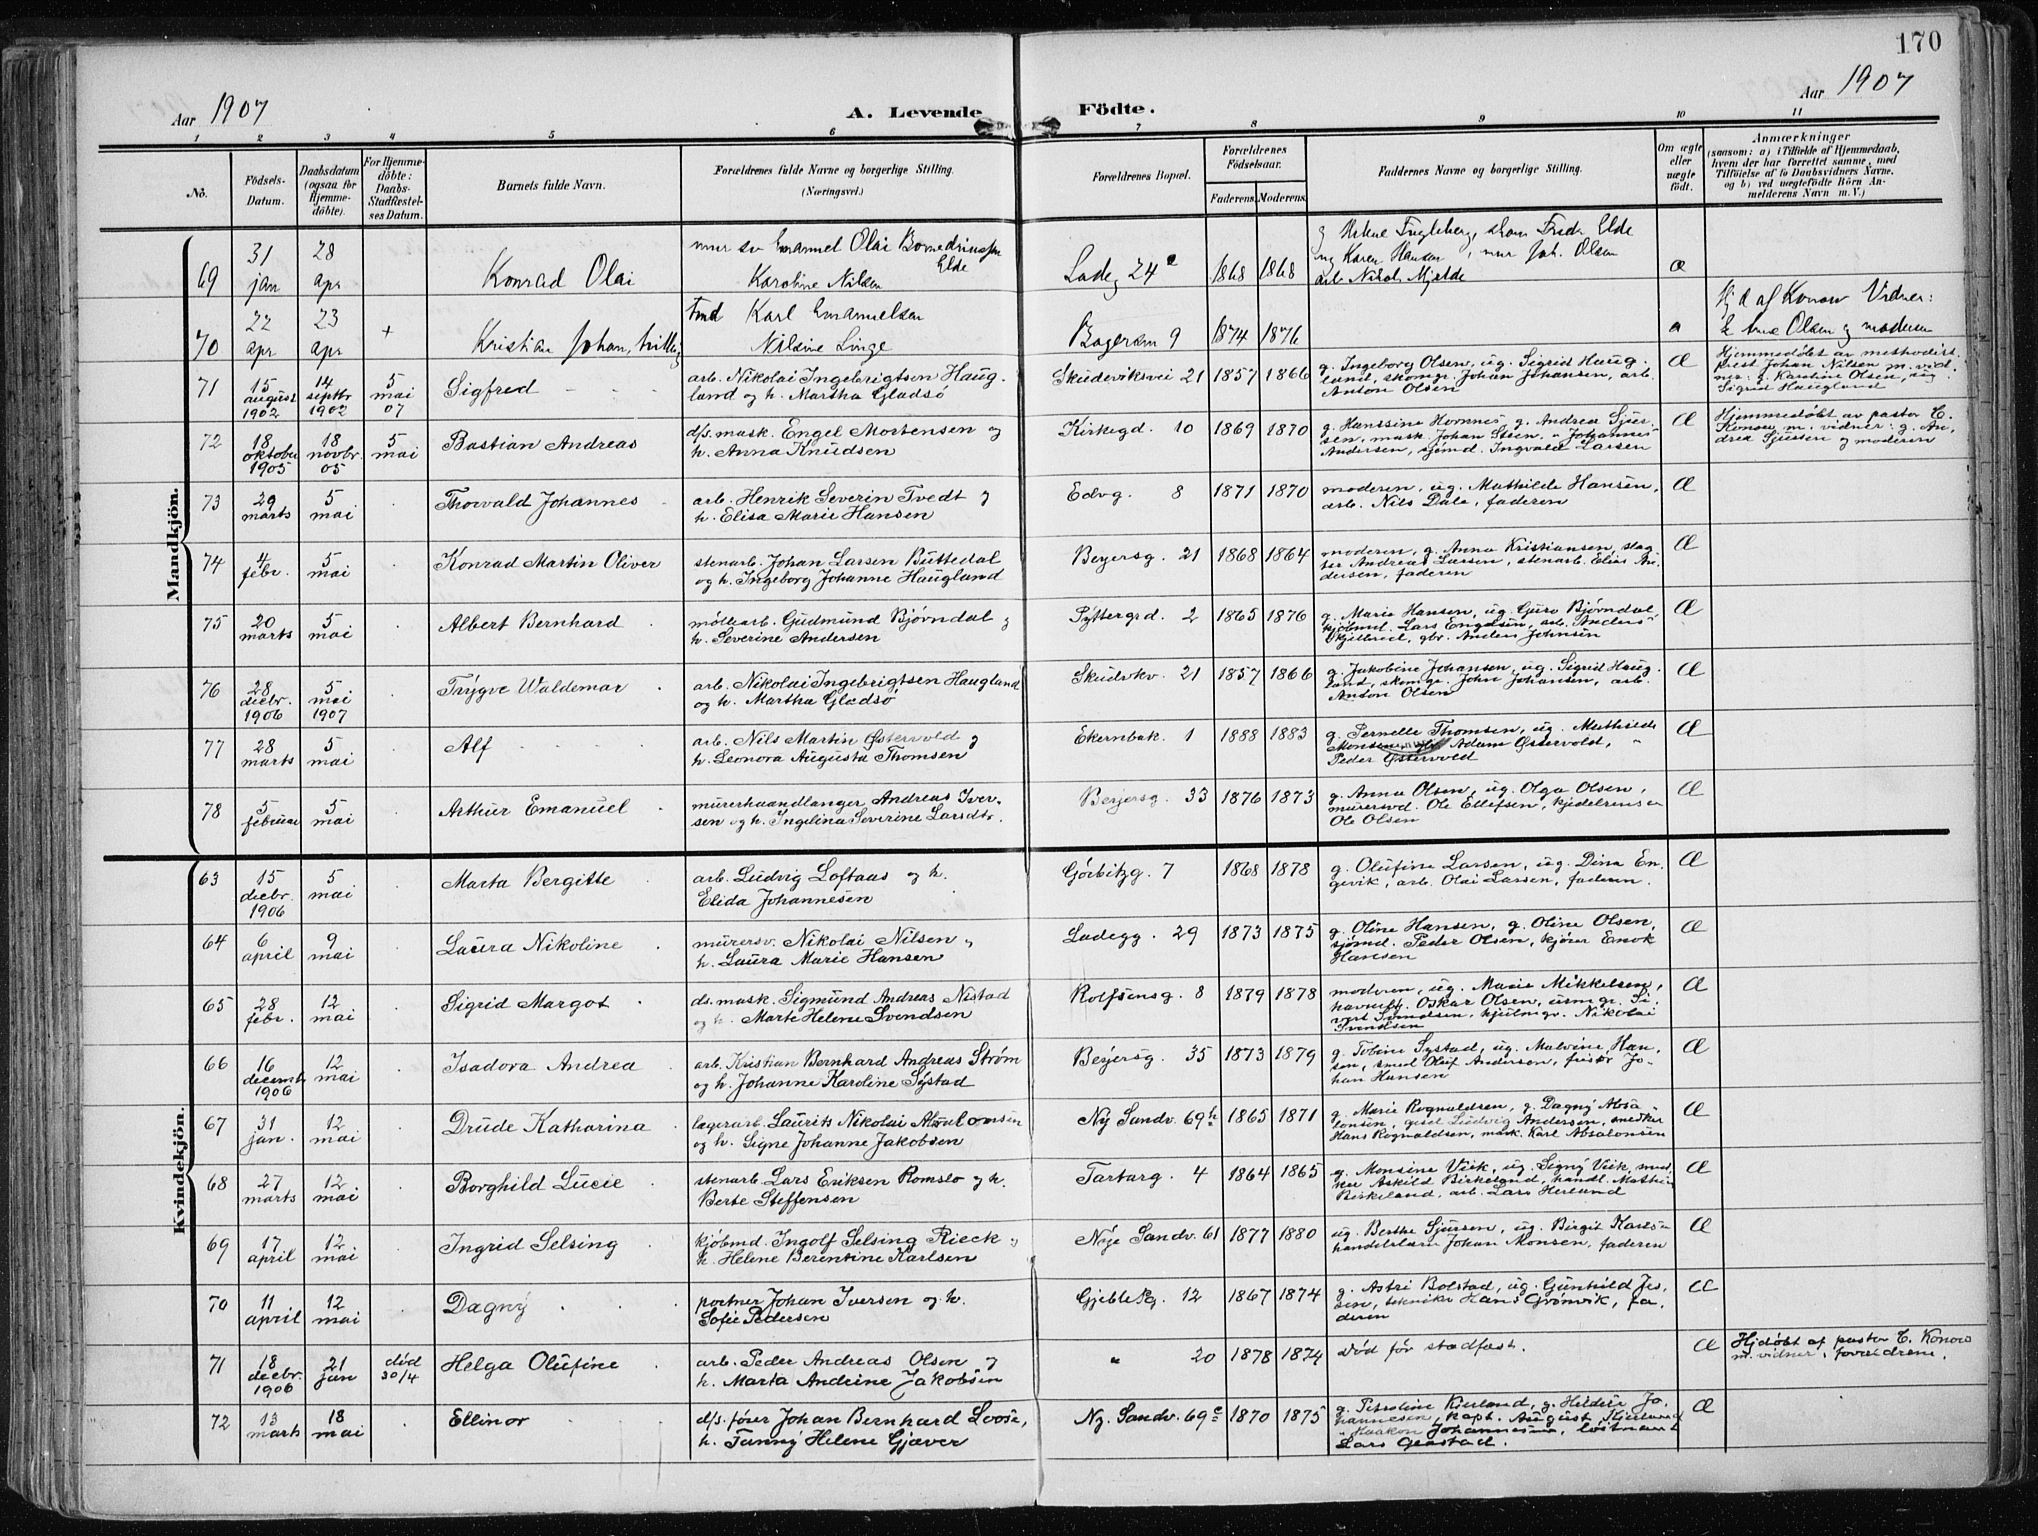 170
Aar 1907
A. Levende Födte.
Aar 1907
1 2 3 4 5 6 7 8 9 10 11
No.
Födsels-Datum.
Daabsdatum (ogsaa for Hjemmedöbte).
For Hjemmedöbte: Daabs-Stadfæstelses Datum.
Barnets fulde Navn.
Forældrenes fulde Navne og borgerlige Stilling. (Næringsvei.)
Forældrenes Bopæl.
Forældrenes Födselsaar.
Faderens. Moderens.
Faddernes Navne og borgerlige Stilling.
Om ægte eller uægte födt.
Anmærkninger (saasom: a) i Tilfælde af Hjemmedaab, hvem der har forrettet samme, med Tilföielse af to Daabsvidners Navne. og b) ved uægtefödte Börn Anmelderens Navn m. V.)
Mandkjön.
69 31 jan 28 apr Konrad Olai
Emanuel Olai
Elde
Karoline Nilsen
Ladeg 24 1868 1868
Elde
og Karen Hansen, mur Joh. Olsen
arb. Nikol. Mjelde
70 22 apr 23 apr + Kristian Johan,
Karl Emanuelsen
Nilsine Linge
9 1874 1876
Hjd af Konow Vidner:
Olsen og moderen
71 15 august 1902 14 septbr 1902 5 mai 07 Sigfred
arb. Nikolai Ingebrigtsen Haug-
land og h. Martha Gladsø
Skudeviksvei 21 1857 1866
g. Ingeborg Olsen, ug. Sigrid Haug-
land, skomgr. Johan Johansen, arb.
Anton Olsen
Æ
Hjemmedøbt av methodist-
prest Johan Nilsen m. vid-
ner: g. Karine Olsen, ug
Sigrid Haugland
72 18 oktober 1905 18 novbr. 05 5 mai Bastian Andreas
d/s. mask. Engel Mortensen og
h. Anna Knudsen
Kirkegd. 10 1869 1870
g. Hanssine Homnes g. Andrea Sjur-
sen, mask. Johan Steen, " Johannes
Andersen, sjømd. Ingvald Larsen
Æ
Hjemmedøbt av pastor C.
Konow m. vidner: g. An-
drea Sjursen og moderen
73 29 marts 5 mai Thorvald Johannes
arb. Henrik Severin Tvedt og
h. Elisa Marie Hansen
Edvg. 8 1871 1870
moderen, ug. Mathilde Hansen,
arb. Nils Dale, faderen
Æ
74 4 febr. 5 mai Konrad Martin Oliver
stenarb. Johan Larsen Buttedal
og h. Ingeborg Johanne Haugland
Beyersg. 21 1868 1864
moderen, g. Anna Kristiansen, slag-
ter Andreas Larsen, stenarb. Elias An-
dersen, faderen
Æ
75 20 marts 5 mai Albert Bernhard
møllearb. Gudmund Bjørndal og
h. Severine Andersen
Pyttergrd. 2 1865 1876
g. Marie Hansen, ug. Guro Bjørndal,
kjøbmd. Lars Engelsen, arb. Anders
Skjelbred, gbr. Anders Johnsen
Æ
76 28 decbr. 1906 5 mai 1907 Trygve Waldemar
arb. Nikolai Ingebrigtsen Haugland
og h. Martha Gladsø
Skudvkv. 21 1857 1866
g. Jakobine Johansen, ug. Sigrid Haug-
land, skomgr. John Johansen, arb.
Anton Olsen
Æ
77 28 marts 5 mai Alf
arb. Nils Martin Østervold og
h. Leonora Augusta Thomsen
Ekernbak. 1 1888 1883
g. Pernelle Thomsen, ug. Mathilde
Monsen, Adam Østervold, "
Peder Østervold
Æ
78 5 februar 5 mai Arthur Emanuel
murerhaandlanger Andreas Iver-
sen og h. Ingelina Severine Larsdtr.
Beyersg. 33 1876 1873
g. Anna Olsen, ug. Olga Olsen,
murersvd. Ole Ellefsen, kjedelrenser
Ole Olsen
Æ
Kvindekjön.
63 15 decbr. 1906 5 mai Marta Bergitte
arb. Ludvig Loftaas og h.
Elida Johannesen
Gørbitzg. 7 1868 1878
g. Olufine Larsen, ug. Dina En-
gevik, arb. Olai Larsen, faderen.
Æ
64 6 april 9 mai Laura Nikoline
murersv. Nikolai Nilsen og
h. Laura Marie Hansen
Ladegg. 29 1873 1875
g. Oline Hansen, g. Oline Olsen,
sjømd. Peder Olsen, kjører Enok
Hansen
Æ
65 28 febr. 12 mai Sigrid Margot
ds. mask. Sigmund Andreas Nistad
og h. Marte Helene Svendsen
Rolfsensg. 8 1879 1878
moderen, ug. Marie Mikkelsen,
havnef. Oskar Olsen, Si-
vert Svendsen, Nikolai
Svendsen
Æ
66 16 decemb 1906 12 mai Isadora Andrea
arb. Kristian Bernhard Andreas Strøm
og h. Johanne Karoline Systad
Beyersg. 35 1873 1879
g. Tobine Systad, ug. Malvine Han-
sen, smed Oluf Andersen, frisør Jo-
han Hansen
Æ
67 31 jan. 12 mai Drude Katharina
lagerarb. Laurits Nikolai Absalonsen
og h. Signe Johanne Jakobsen
Ny. Sandv. 69h 1865 1871
g. Marie Rognaldsen, g. Dagny Absa-
lonsen, Ludvig Andersen, snedker
Hans Rognaldsen, mask. Karl Absalonsen
Æ
68 27 marts 12 mai Borghild Lucie
stenarb. Lars Eriksen Romslo og h.
Berte Steffensen
Tartarg. 4 1864 1865
g. Monsine Viik, ug. Signy Viik,
Askild Birkeland, handl. Mathias
Birkeland, arb. Lars Herlund
Æ
69 17 april 12 mai Ingrid Selsing
kjøbmd. Ingolf Selsing Rieck og
h. Helene Berentine Karlsen
Nye Sandv. 61 1877 1880
ug. Bertha Sjursen, ug. Birgit Karlsen
handelslærl. Johan Monsen, faderen
Æ
70 11 april 12 mai Dagny
portner Johan Iversen og h.
Sofie Pedersen
Gjeble Pg. 12 1867 1874
g. Astri Bolstad, ug. Gunhild Jes-
sen, tekniker Hans Grønvik, fa-
deren
Æ
71 18 decbr. 1906 21 jan død 30/4 Helga Olufine
arb. Peder Andreas Olsen og
h. Marta Andrine Jakobsen
" 20 1878 1874
død før stadfæst.
Æ
Hjdøbt af pastor C. Konow
m. vidner, forældrene.
72 13 mark 18 mai Ellinor
d/s. fører Johan Bernhard Loose,
h. Fanny Helene Gjæver
Ny. Sandv. 69e 1870 1875
g. Petroline Kielland, g. Hildur Jo-
hannesen, kapt. August Kielland
" Haakon Johannesen, løitnant
Lars Geastad.
Æ